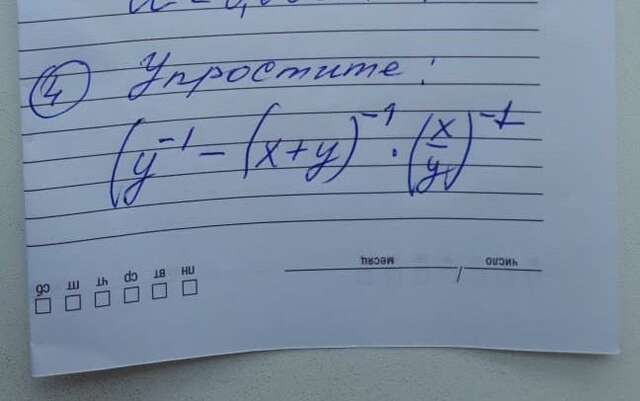 ④ Упростите:
(y⁻¹ − (x+y)⁻¹ · (x/y)⁻¹
число / месяц
пн вт ср чт пт сб